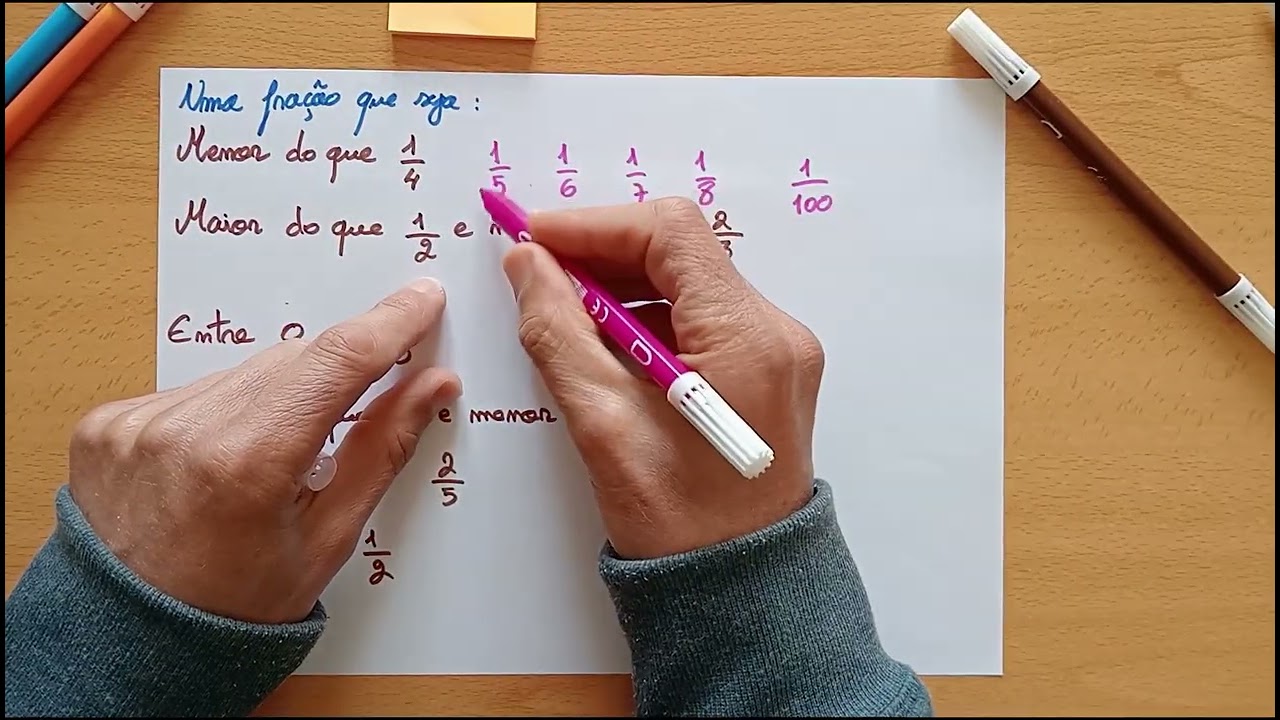 Uma fração que seja :
Menor do que 1/4 1/5 1/6 1/7 1/8 1/100
Maior do que 1/2 e 2/3
Entre 0
e menor
2/5
1/2